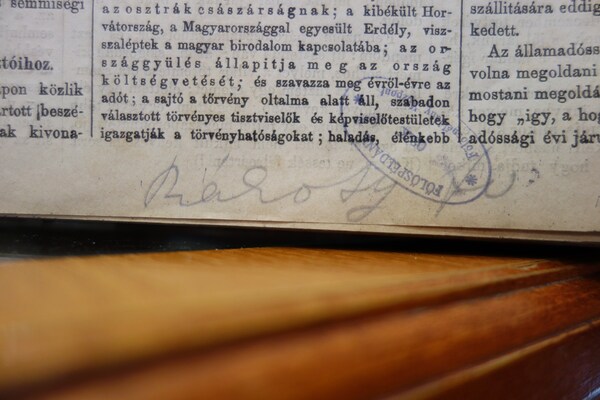 semmiségi
tóihoz.
pon közlik
ártott beszé-
ak kivona-
az osztrák császárságnak; a kibékült Hor-
vátország, a Magyarországgal egyesült Erdély, visz-
szaléptek a magyar birodalom kapcsolatába; az or-
szággyülés állapitja meg az ország
költségvetését; és szavazza meg évről-évre az
adót; a sajtó a törvény oltalma alatt áll, szabadon
választott törvényes tisztviselők és képviselőtestületek
igazgatják a törvényhatóságokat; haladás, élénkebb
szállitására eddig
kedett.
Az államadóss
volna megoldani
mostani megoldá
hogy „igy, a hog
adóssági évi járu
FÖLÖSPÉLDÁNY